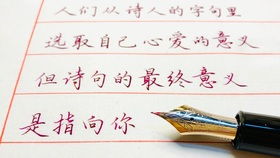 人们从诗人的字句里
选取自己心爱的意义
但诗句的最终意义
是指向你